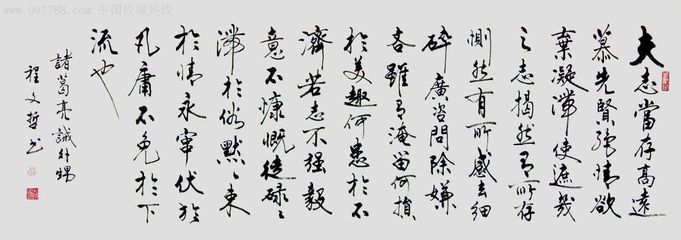 www.997788.com 中国收藏热线
夫志當存高遠
慕先賢絕情欲
棄凝滯使庶幾
之志揭然有所存
惻然有所感去細
碎廣咨問除嫌
吝雖有淹留何損
於美趣何患於不
濟若志不强毅
意不慷慨徒碌々
滯於俗默々束
於情永竄伏於
凡庸不免於下
流也
諸葛亮誡外甥
程文哲书